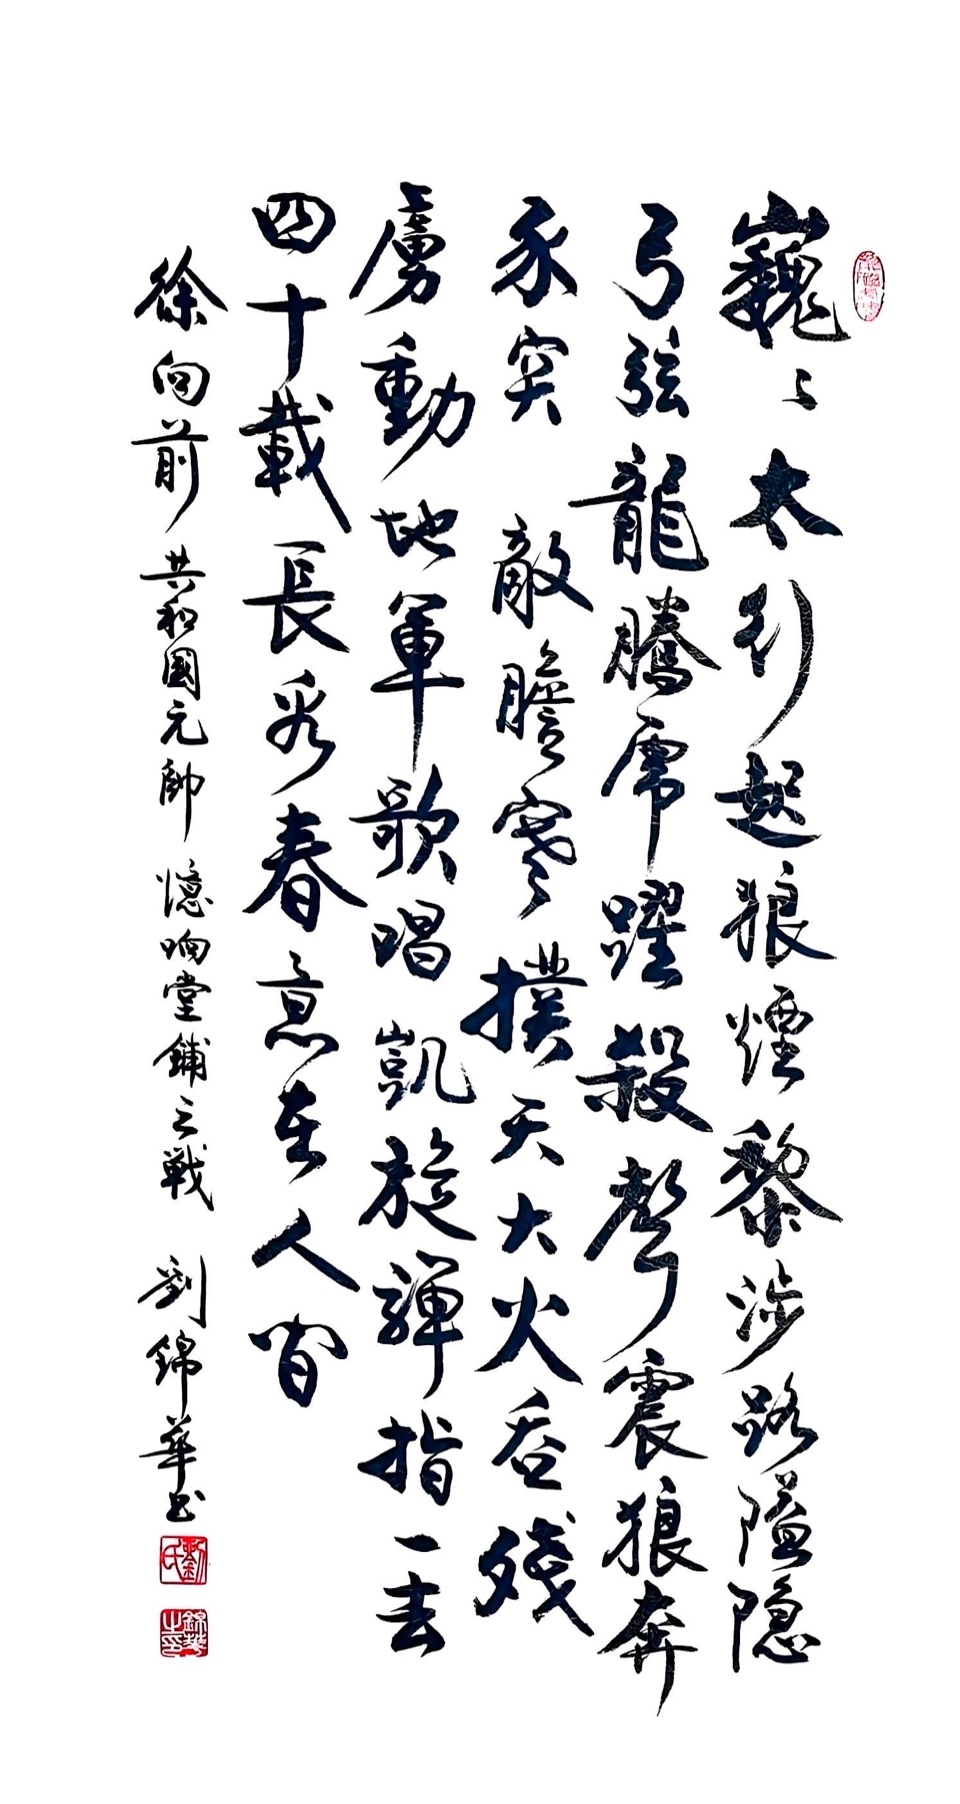 巍〻太行起狼煙黎涉路隘隐
弓弦龍騰虎躍殺聲震狼奔
豕突敵膽寒撲天大火吞殘
虜動地軍歌唱凱旋彈指一去
四十載長留春意在人间
徐向前共和國元帥憶响堂鋪之戰 劉錦華书
劉氏
錦華之印